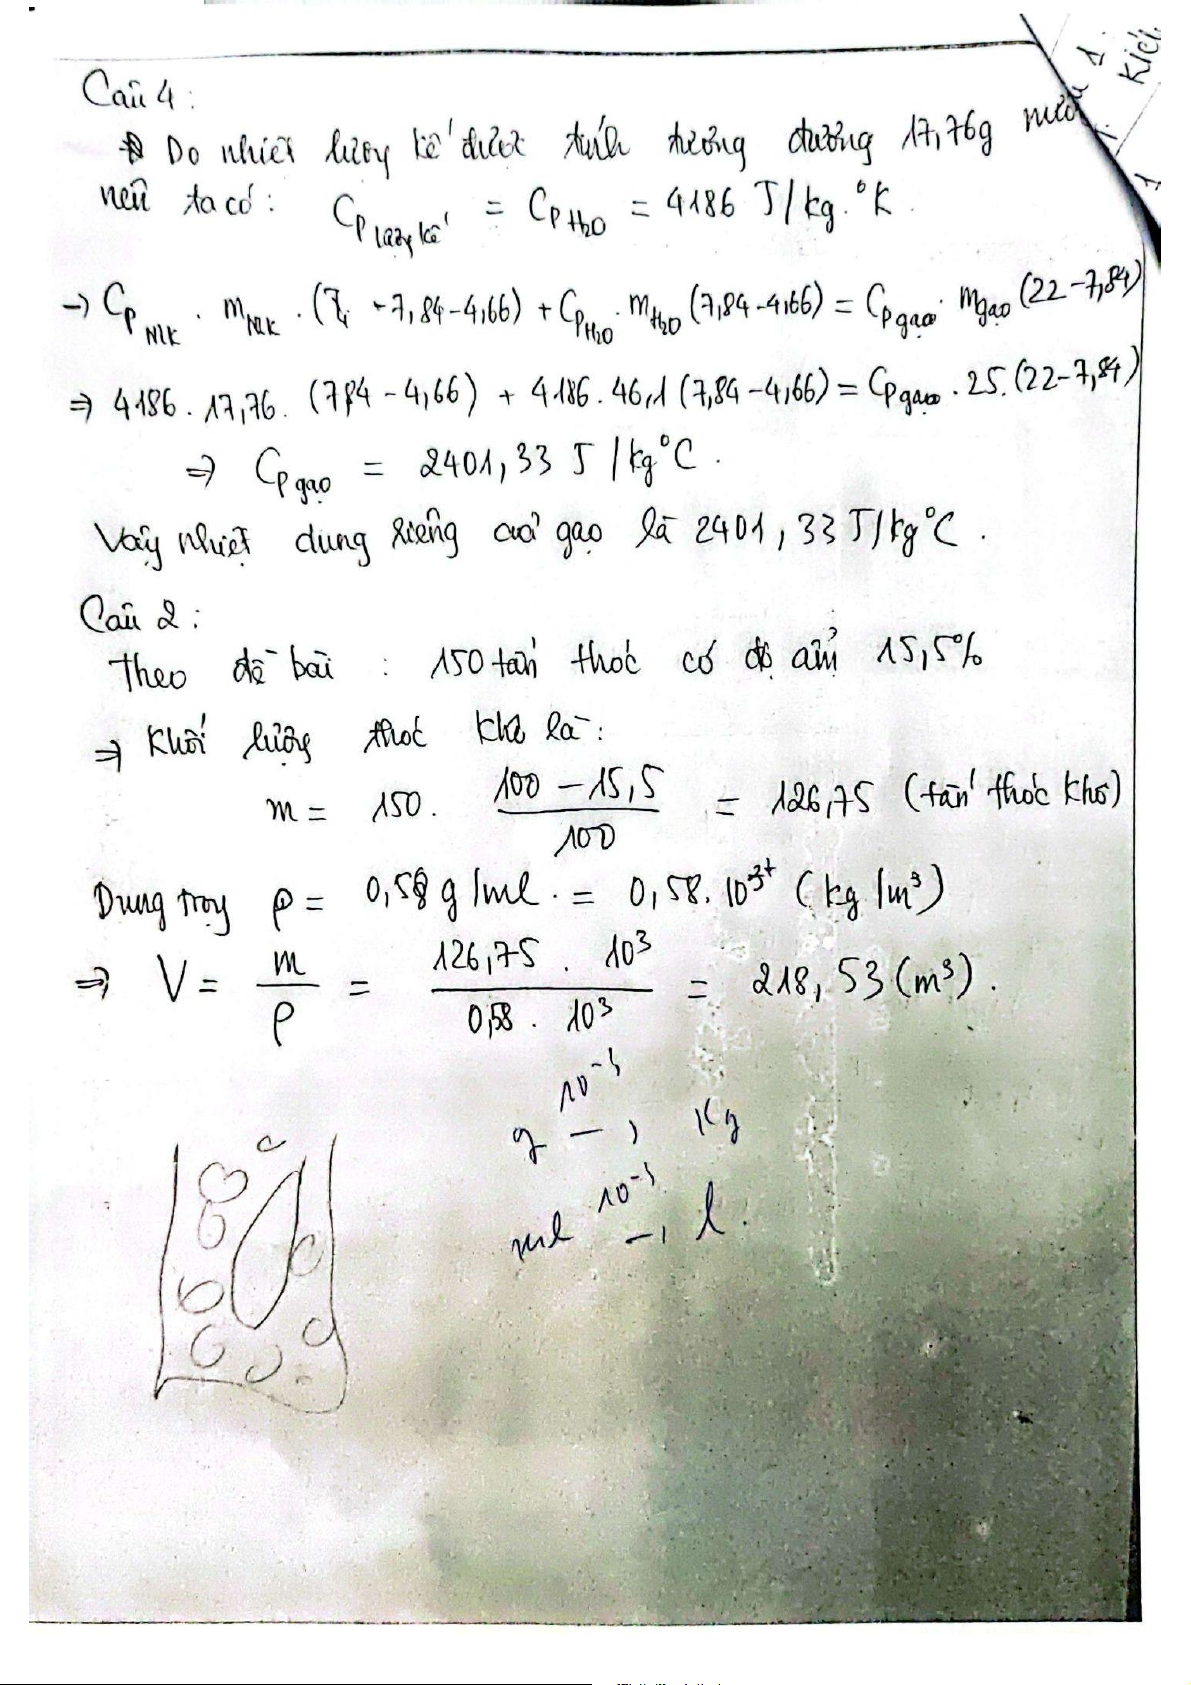 Câu 4 :
Do nhiệt lượng kế được tính tương đương 17,76g nước
nên ta có : Cp lượng kế = Cp H2O = 4186 J/kg.°K.
→ Cp NLK . m NLK . ( 7,84-4,66) + Cp H2O . m H2O (7,84-4,66) = Cp gạo . m gạo (22-7,84)
⇒ 4186 . 17,76. (7,84 - 4,66) + 4186. 46,1 (7,84-4,66) = Cp gạo . 25. (22-7,84)
⇒ Cp gạo = 2401, 33 J /kg°C .
Vậy nhiệt dung riêng của gạo là 2401, 33 J/kg°C .
Câu 2 :
Theo đề bài : 150 tấn thóc có độ ẩm 15,5%
⇒ Khối lượng thóc khô là :
m = 150. (100 - 15,5)/100 = 126,75 (tấn thóc khô)
Dung trọng ρ = 0,58 g/ml . = 0,58. 10³ (kg /m³)
⇒ V = m/ρ = (126,75 . 10³)/(0,58 . 10³) = 218, 53 (m³) .
10⁻³
g → Kg
10⁻³
ml → l .